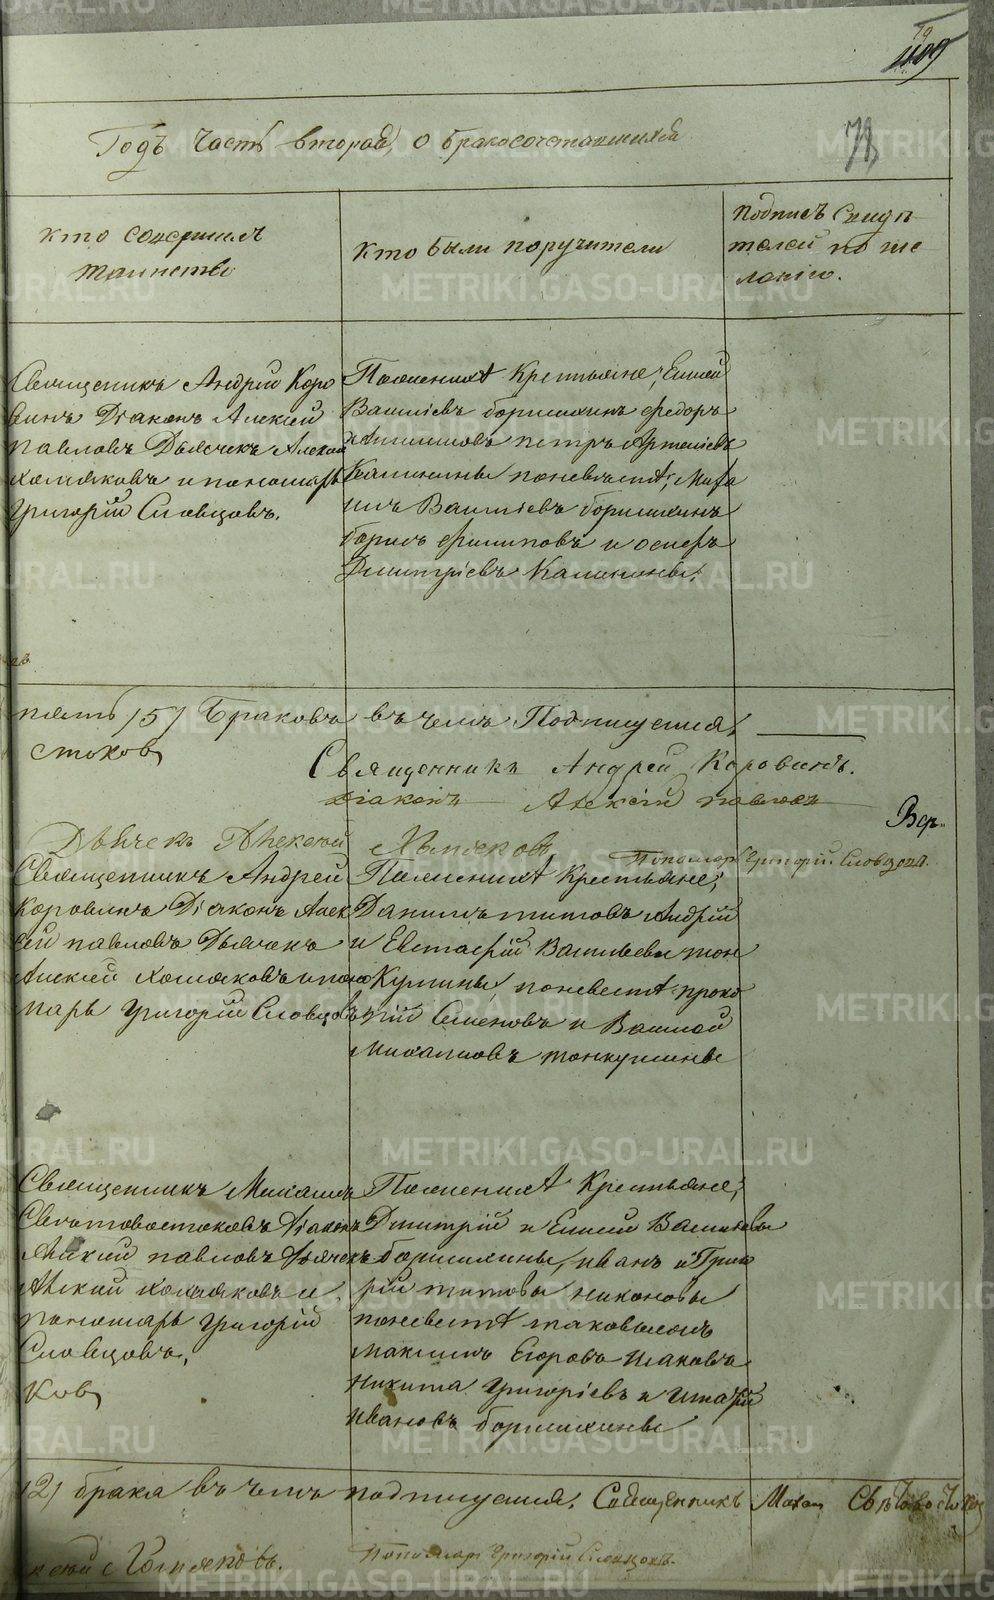 METRIKI.GASO-URAL.RU
79
78
Годъ Часть вторая, о бракосочетавшихся
кто совершилъ
таинство
кто были поручители
подпись свидѣ
телей по же
ланію.
Священникъ Андрей Коро
винъ Діаконъ Алексій
Павловъ Дьячекъ Алексей
Хомяковъ и пономарь
Григорій Словцовъ.
По женихѣ Крестьяне; Елисей
Василіевъ боришихинъ федоръ
Петръ Артеміевъ
Калинины по невѣстѣ; Миха
илъ Василіевъ боришихинъ
борисъ филиповъ и осипъ
Дмитріевъ Калинины.
пять /5/ браковъ въ чемъ Подписуемся
стоковъ
Священникъ Андрей Коровинъ.
Діаконъ Алексій Павловъ
Вер.
Дьячекъ Алексей Хомяковъ
Пономарь Григорій Словцовъ.
Священникъ Андрей
Коровинъ Діаконъ Алек
сей Павловъ Дьячекъ
Алексей Хомяковъ и поно
марь Григорій Словцовъ
По женихѣ Крестьяне;
Данилъ титовъ Андрей
и Евстафій Васильевы тон
Кушины, по невестѣ проко
пій Семеновъ и Василей
Михаиловъ тонкушины
Священникъ Михаилъ
Святовостоковъ Діаконъ
Алексей Павловъ Дьячекъ
Алексей Хомяковъ и
пономарь Григорій
Словцовъ.
ковъ
По женихѣ Крестьяне;
Дмитрій и Елисей Васильевы
боришихины, иванъ и Григо
рій титовы никоновы
по невестѣ таковыежъ
Максимъ Егоровъ Исаковъ
Никита Григоріевъ и Игнатій
Ивановъ боришихины
/2/ брака въ чемъ подписуемся. Священникъ Михаилъ Святовостоковъ
ксей Хомяковъ.
Пономарь Григорій Словцовъ.